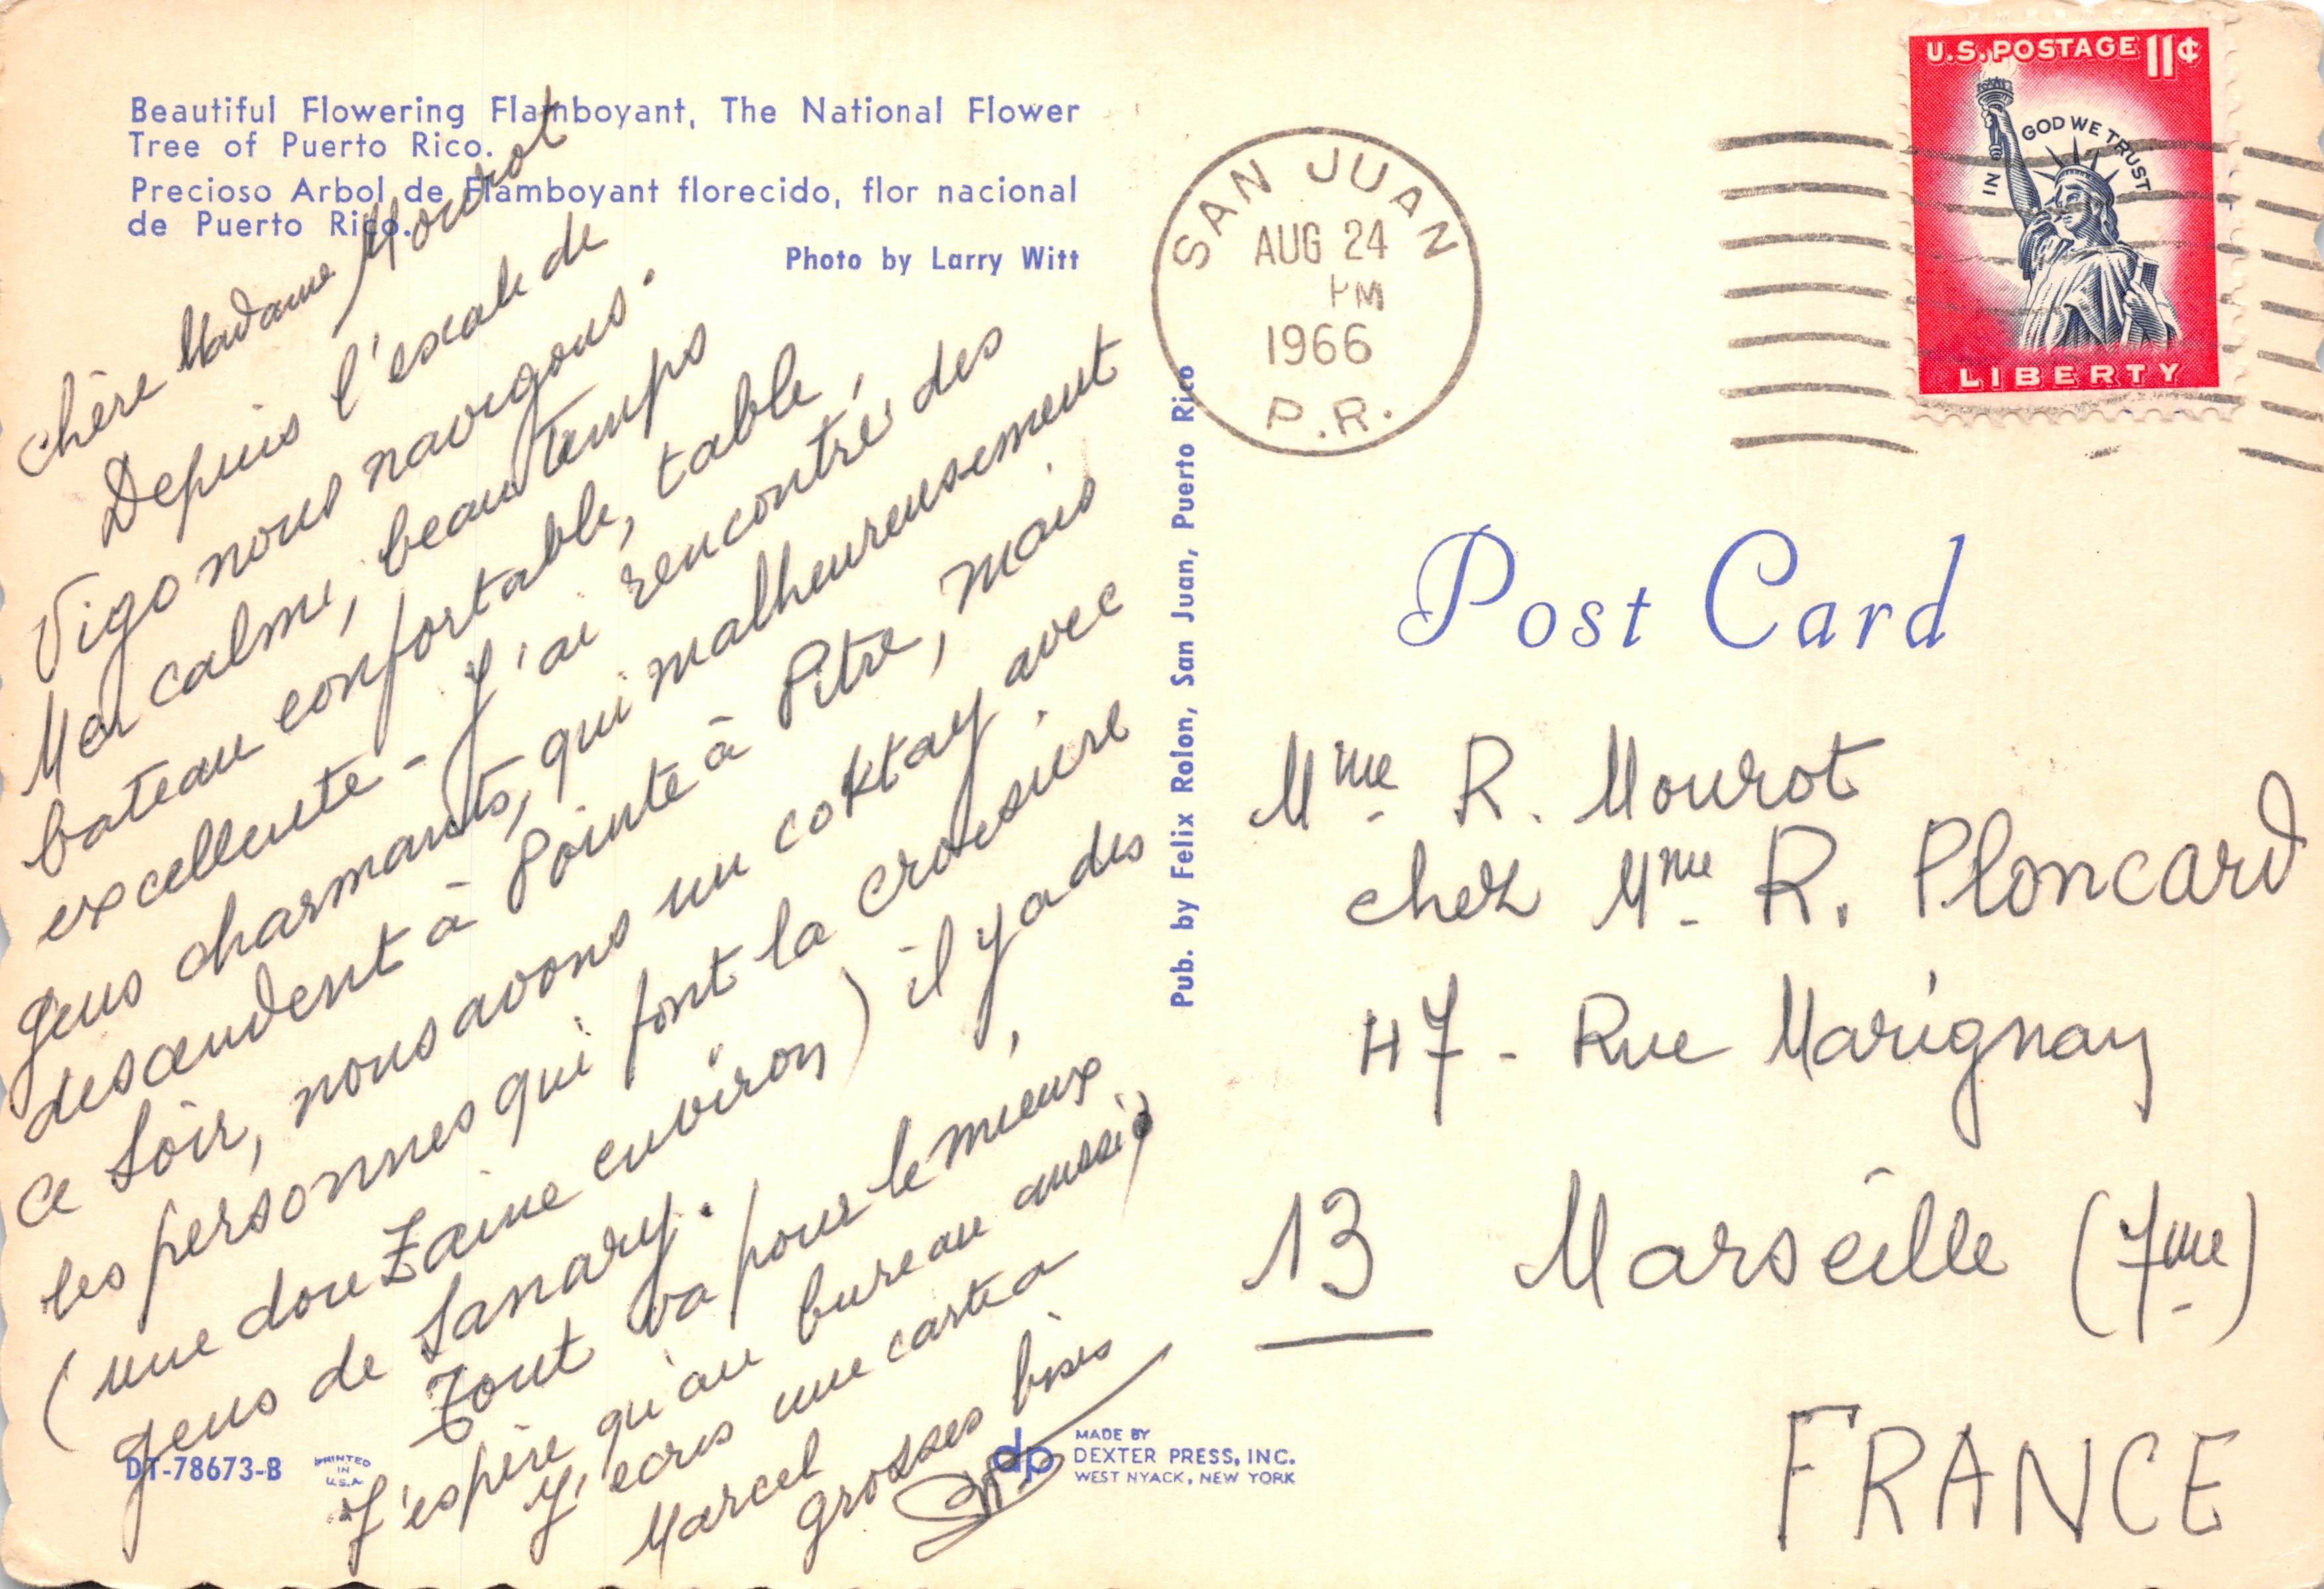 Beautiful Flowering Flamboyant, The National Flower
Tree of Puerto Rico.
Precioso Arbol de Flamboyant florecido, flor nacional
de Puerto Rico.
Photo by Larry Witt
chère Madame Mourot
Depuis l'escale de
Vigo nous navigons.
Mer calme, beau temps
bateau confortable, table
excellente - J'ai rencontré des
gens charmants, qui malheureusement
descendent à Pointe à Pitre, mais
ce soir, nous avons un coktay avec
les personnes qui font la croisière
(une douzaine environ) il y a des
gens de Sanary.
Tout va pour le mieux,
J'espère qu'au bureau aussi,
J'écris une carte a
Marcel
grosses bises
DT-78673-B
PRINTED
IN
U.S.A.
dp
MADE BY
DEXTER PRESS, INC.
WEST NYACK, NEW YORK
Pub. by Felix Rolon, San Juan, Puerto Rico
SAN JUAN
AUG 24
PM
1966
P.R.
U.S. POSTAGE 11¢
IN GOD WE TRUST
LIBERTY
Post Card
Mme R. Mourot
chez Mme R. Ploncard
47 - Rue Marignay
13 Marseille (7me)
FRANCE